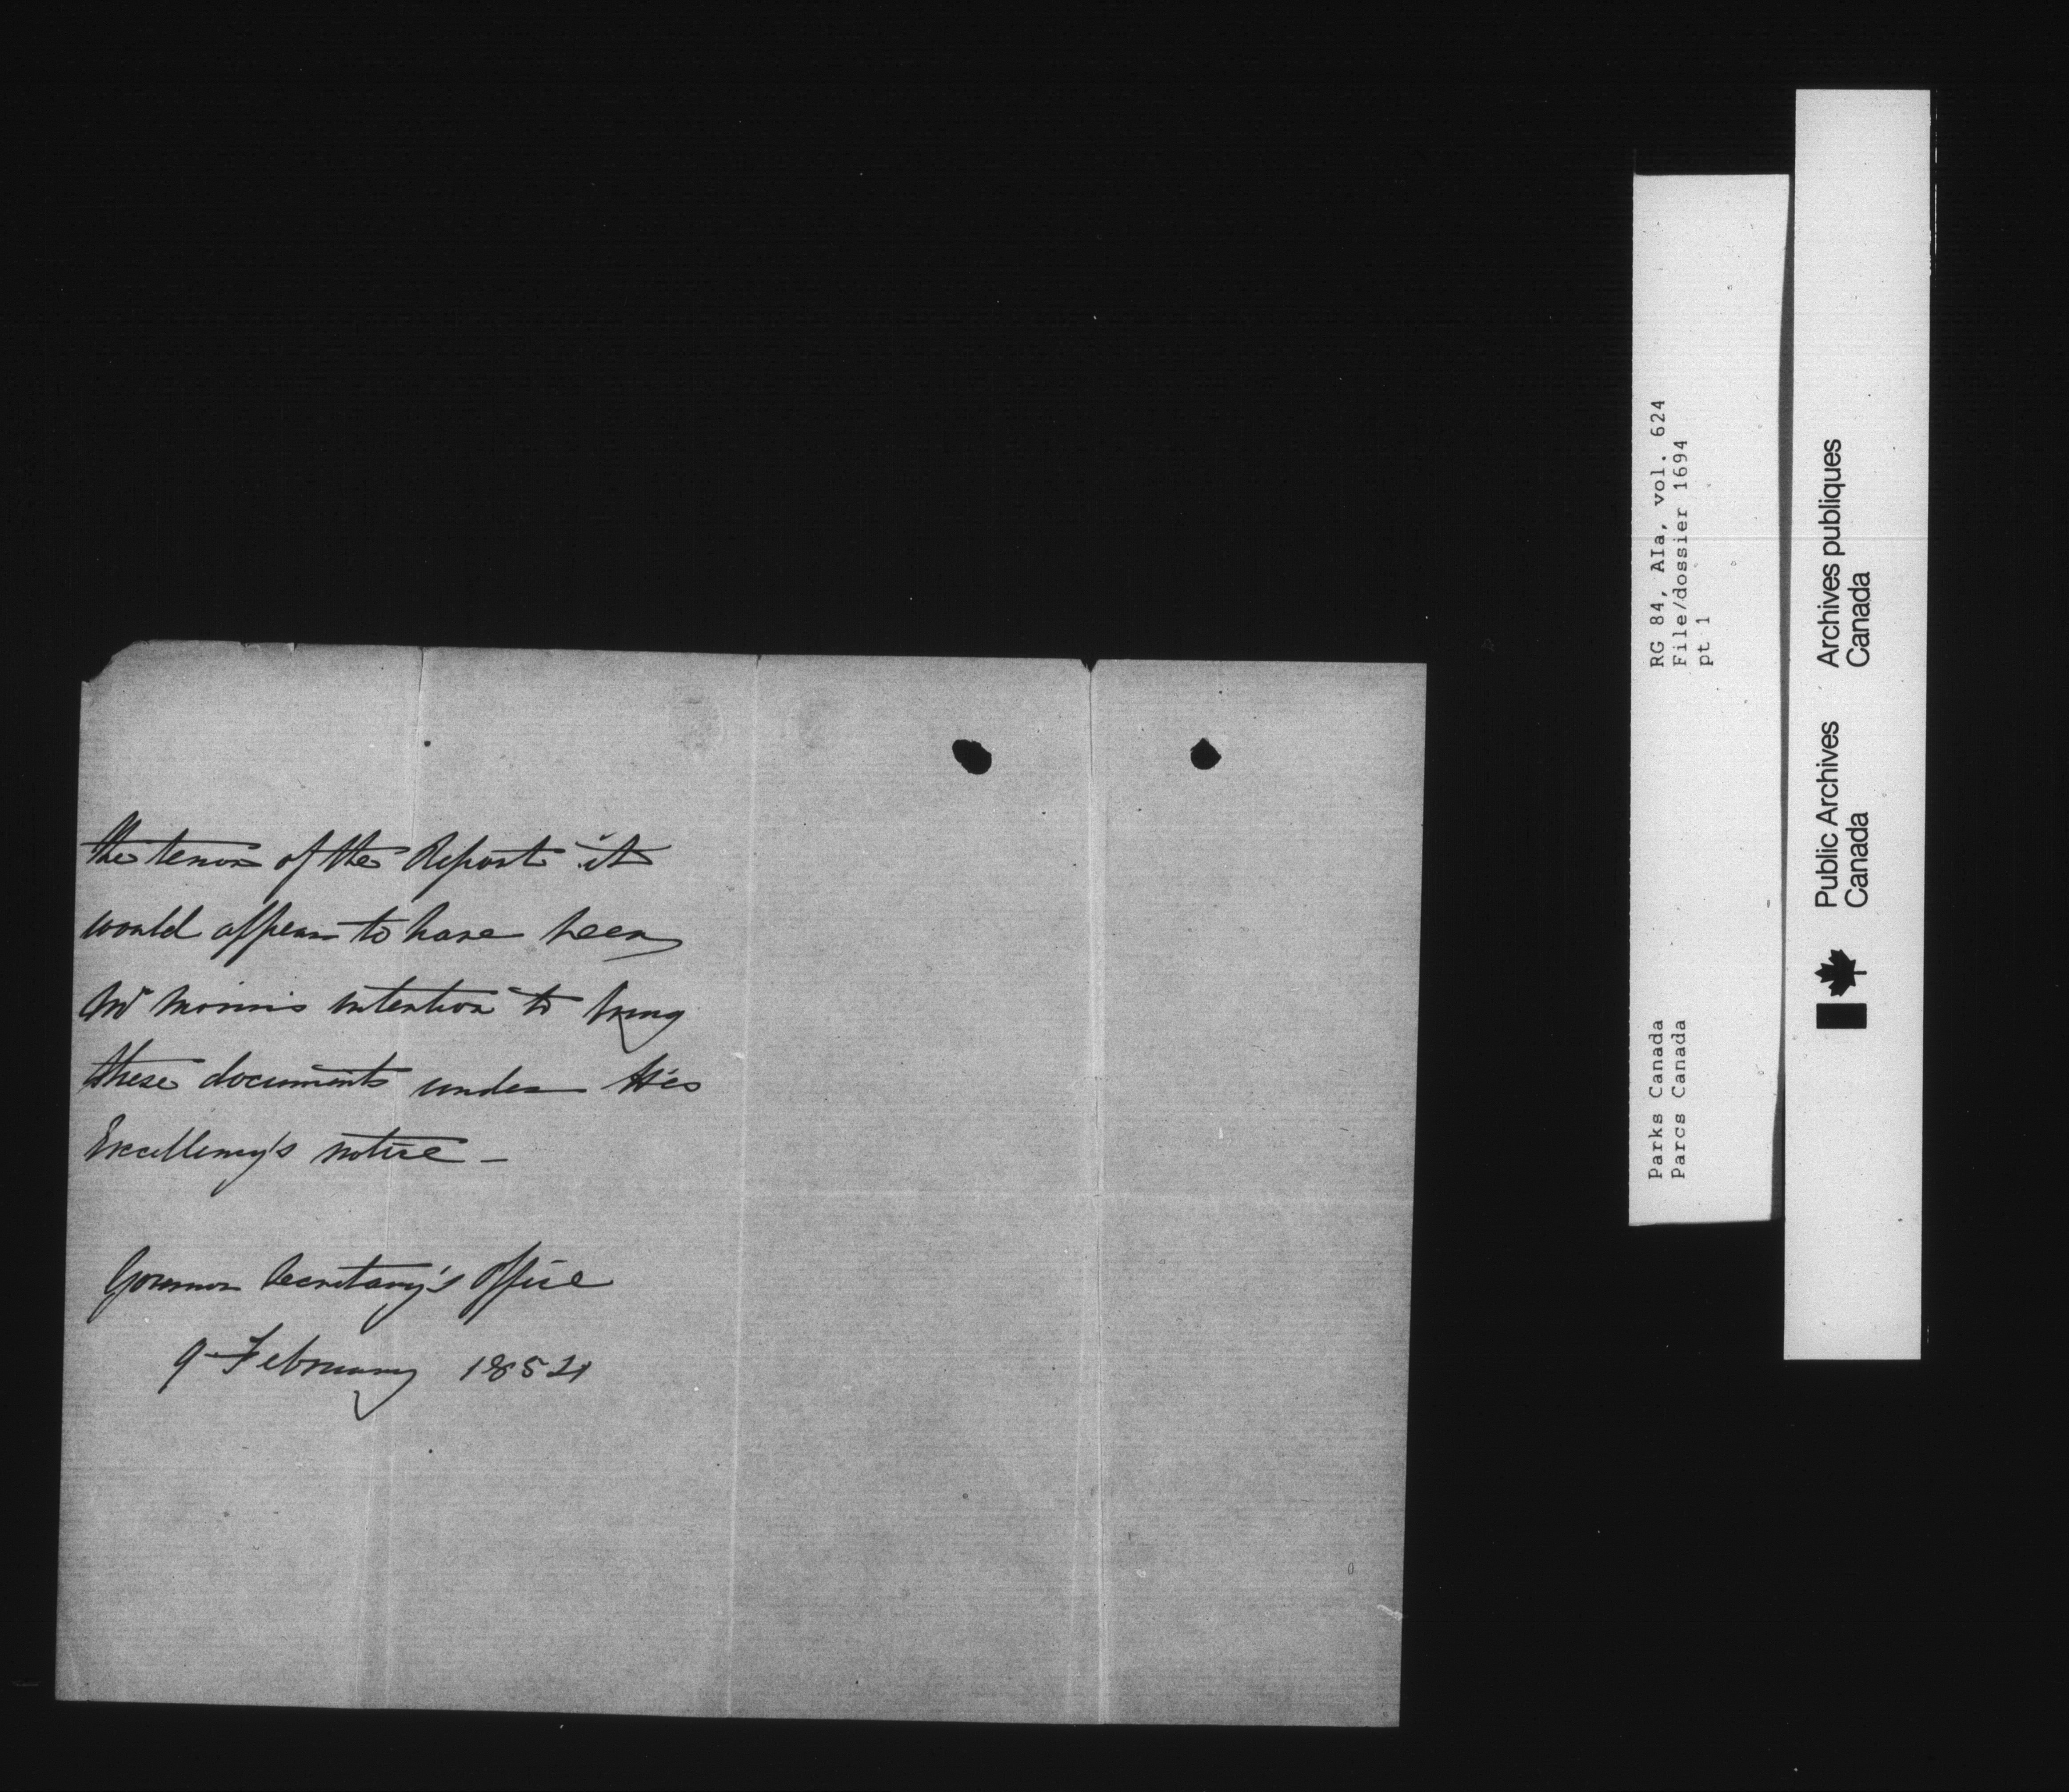 the tenor of the Report it
would appear to have been
Mr Morris intention to bring
these documents under His
Excellency's notice –
Governor Secretary's Office
9 February 1852
RG 84, AIa, vol. 624
File/dossier 1694
pt 1
Parks Canada
Parcs Canada
Public Archives
Canada
Archives publiques
Canada